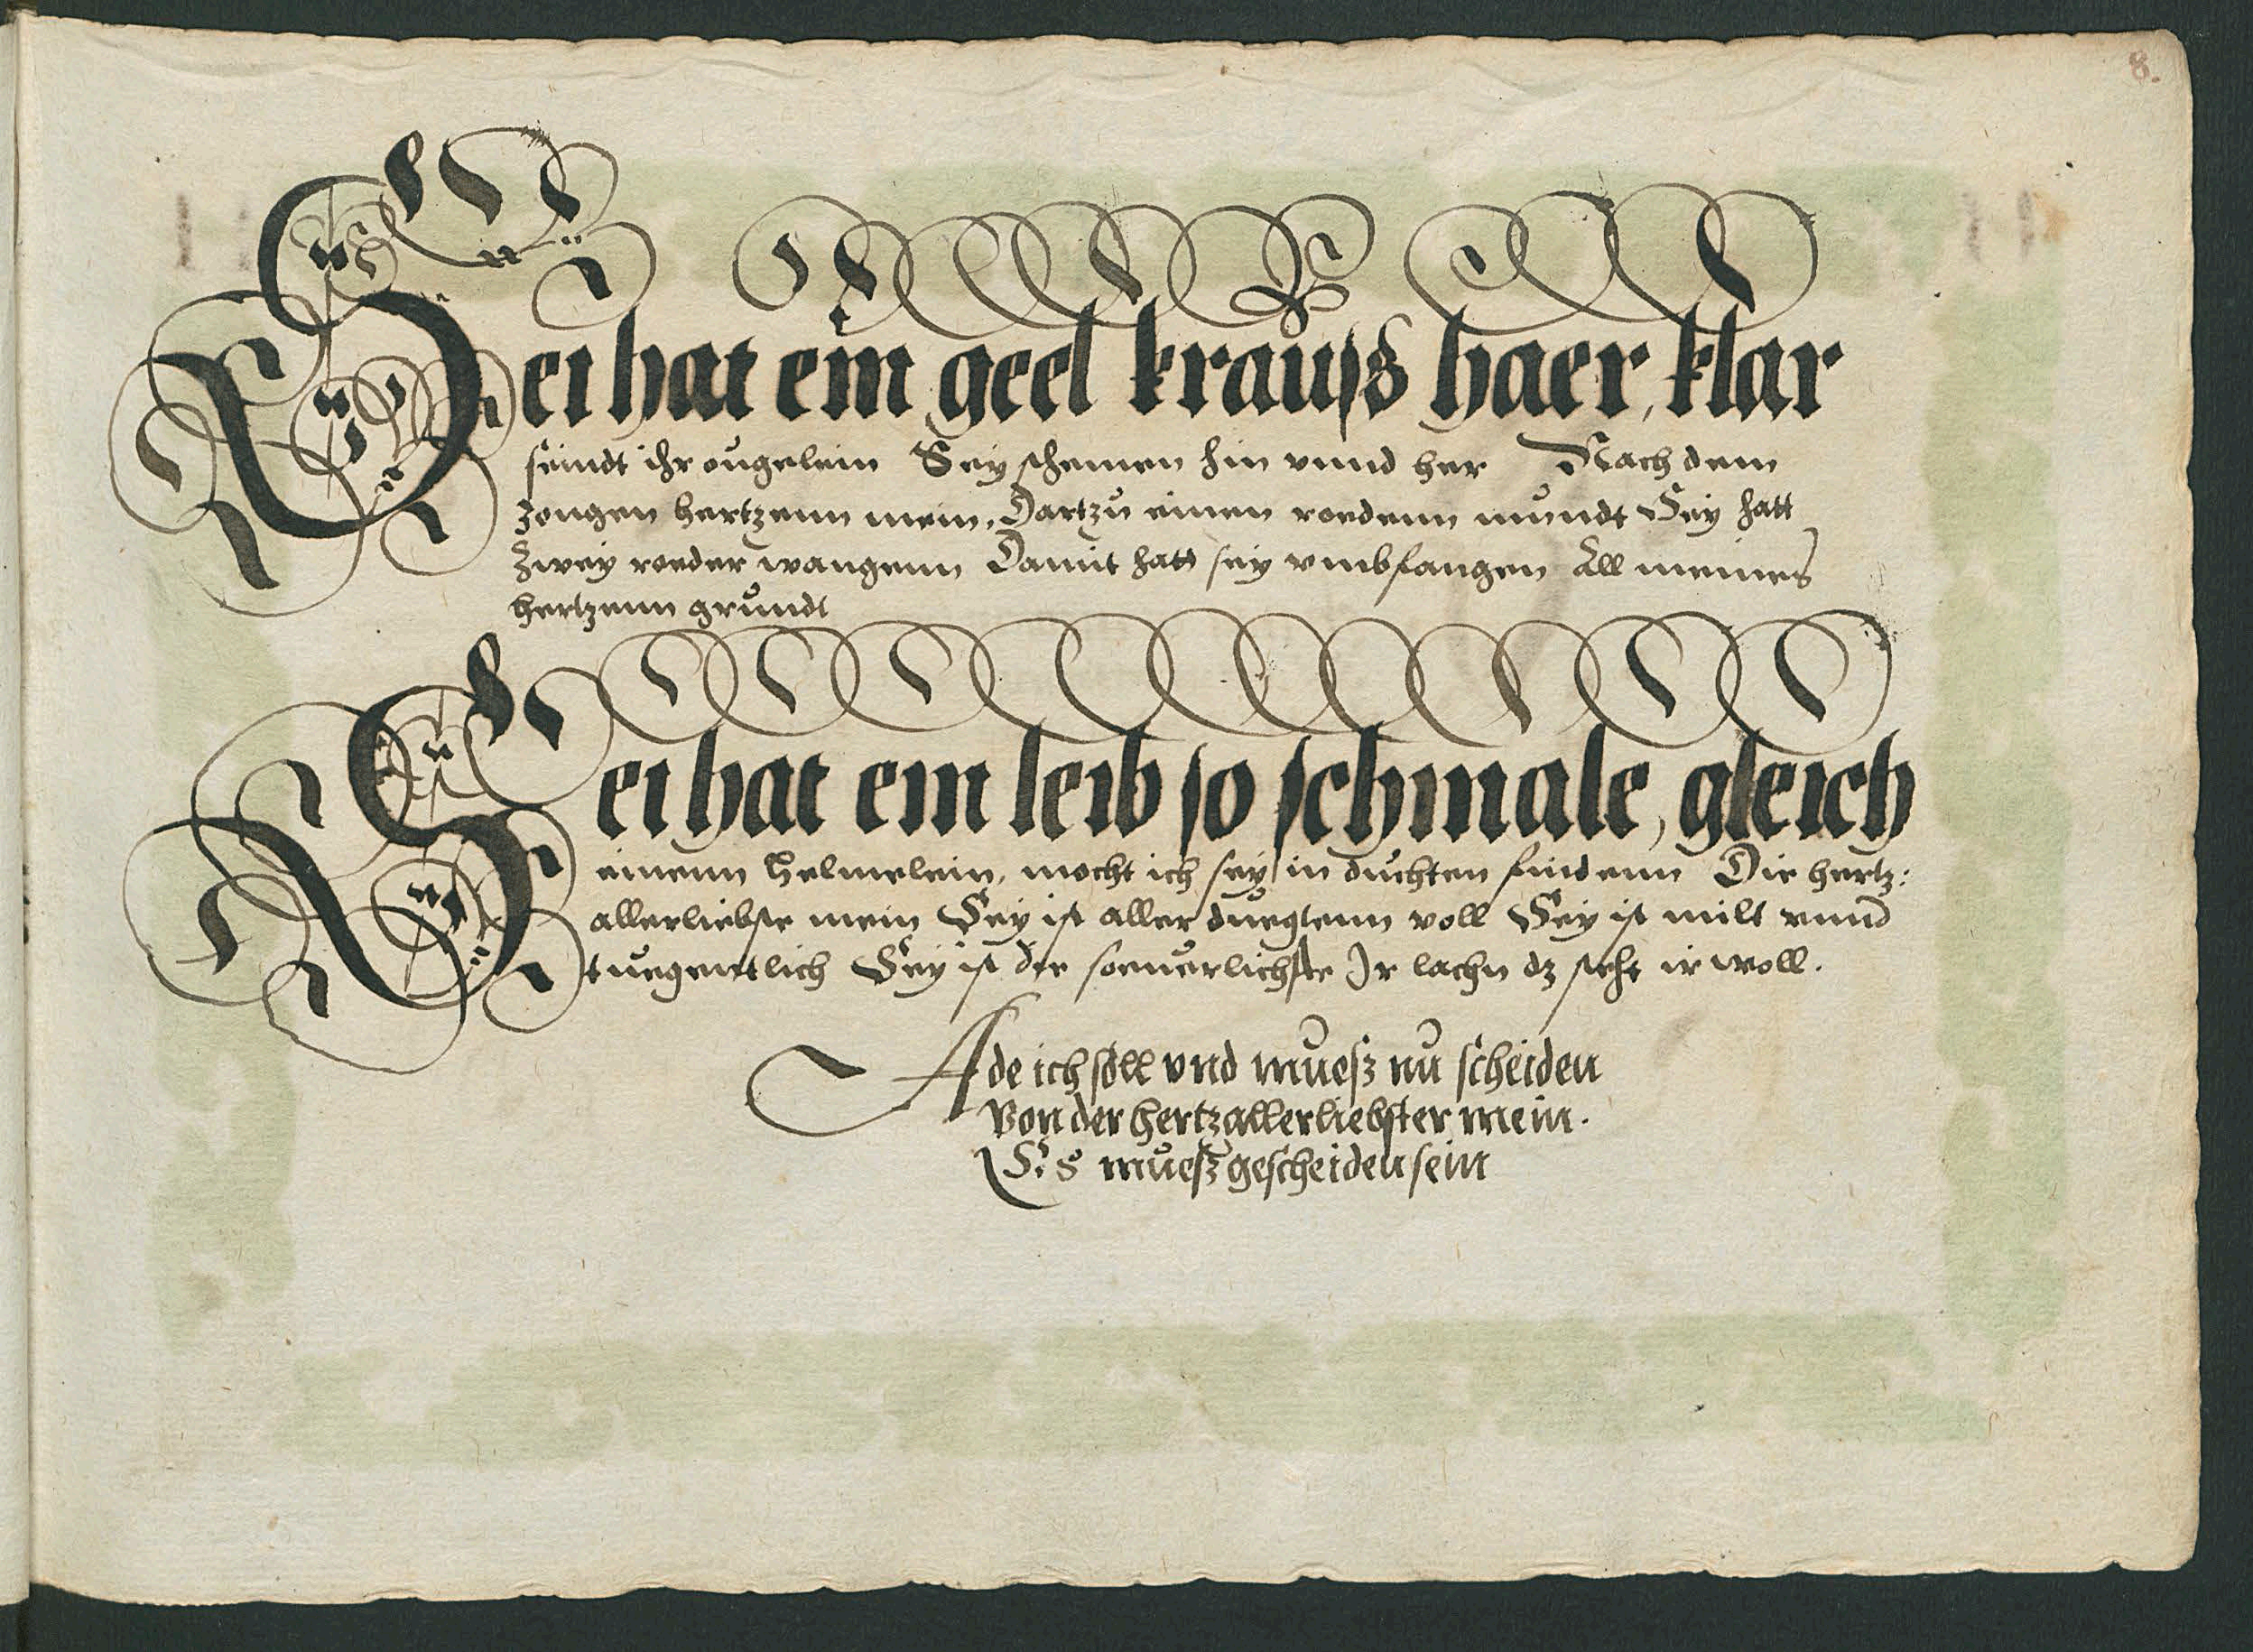 8.
Sei hat ein geel krauß haer, klar
seindt ihr ougelein Sey schemen hin vnnd her Nach dem
jongen hertzenn mein, Dartzů einen roedenn můndt Sey hatt
Zwey roeder wangenn Damit hatt sey vmbfangen All meines
hertzenn grůndt
Sei hat ein leib so schmale, gleich
einenn Helmelein, mocht ich sey in duchten findenn Die hertz:
allerliebste mein Sey ist aller duegtenn voll Sey ist milt vnnd
tuegentlich Sey ist die Ir lachn dz steht ir woll.
Ade ich soll vnd mueß nů scheiden
Von der hertzallerliebster mein.
Es mueß gescheiden sein